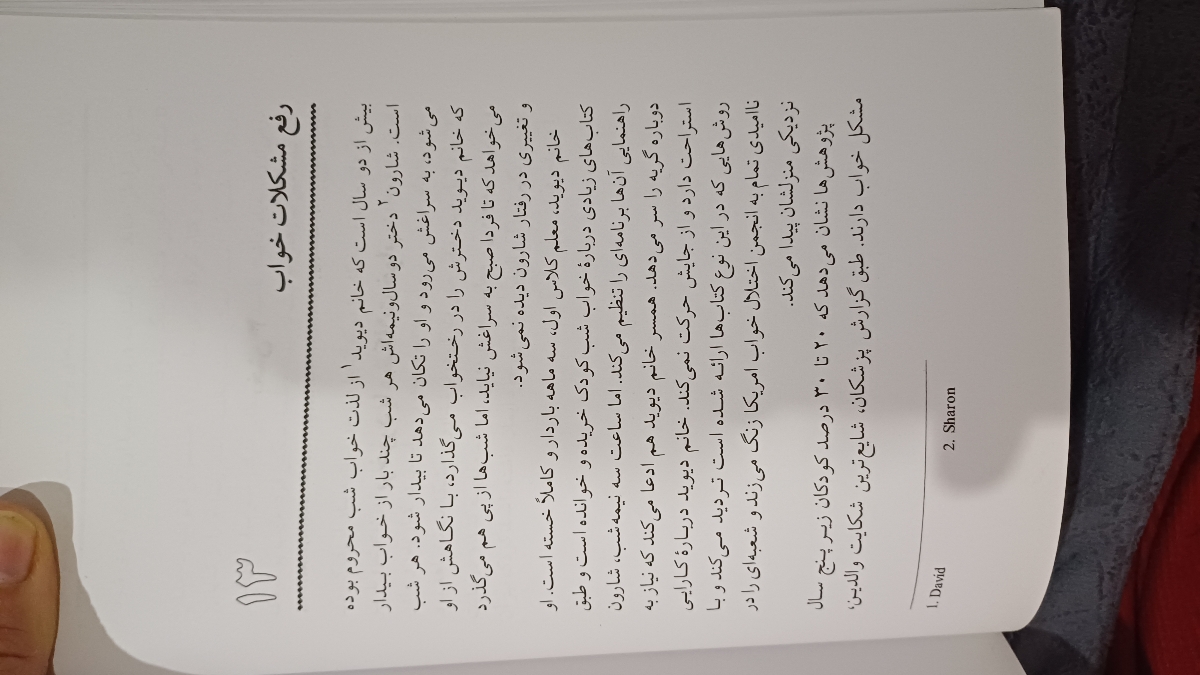 ۱۳
رفع مشکلات خواب
بیش از دو سال است که خانم دیوید۱ از لذت خواب شب محروم بوده
است. شارون۲ دختر دوسال‌ونیمه‌اش هر شب چند بار از خواب بیدار
می‌شود، به سراغش می‌رود و او را تکان می‌دهد تا بیدار شود. هر شب
که خانم دیوید دخترش را در رختخواب می‌گذارد، با نگاهش از او
می‌خواهد که تا فردا صبح به سراغش نیاید، اما شب‌ها از پی هم می‌گذرد
و تغییری در رفتار شارون دیده نمی‌شود.
خانم دیوید، معلم کلاس اول، سه ماهه باردار و کاملاً خسته است. او
کتاب‌های زیادی دربارهٔ خواب شب کودک خریده و خوانده است و طبق
راهنمایی آن‌ها برنامه‌ای را تنظیم می‌کند. اما ساعت سه نیمه‌شب، شارون
دوباره گریه را سر می‌دهد. همسر خانم دیوید هم ادعا می‌کند که نیاز به
استراحت دارد و از جایش حرکت نمی‌کند. خانم دیوید دربارهٔ کارایی
روش‌هایی که در این نوع کتاب‌ها ارائه شده است تردید می‌کند و با
ناامیدی تمام به انجمن اختلال خواب امریکا زنگ می‌زند و شعبه‌ای را در
نزدیکی منزلشان پیدا می‌کند.
پژوهش‌ها نشان می‌دهد که ۲۰ تا ۳۰ درصد کودکان زیر پنج سال
مشکل خواب دارند. طبق گزارش پزشکان، شایع‌ترین شکایت والدین،
1. David 2. Sharon